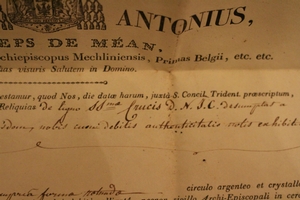 ANTONIUS,
EPS DE MÉAN.
chiepiscopus Mechliniensis, Primas Belgii, etc. etc.
visuris Salutem in Domino.
estamur, quod Nos, die datæ harum, juxtà S. Concil. Trident. præscriptum,
Reliquias de ligno SSmæ Crucis D. N. J. C. desumptas a
nobis cum debitis authenticitatis notis exhibit
forma
circulo argenteo et crystallo
Archi-Episcopali in cera